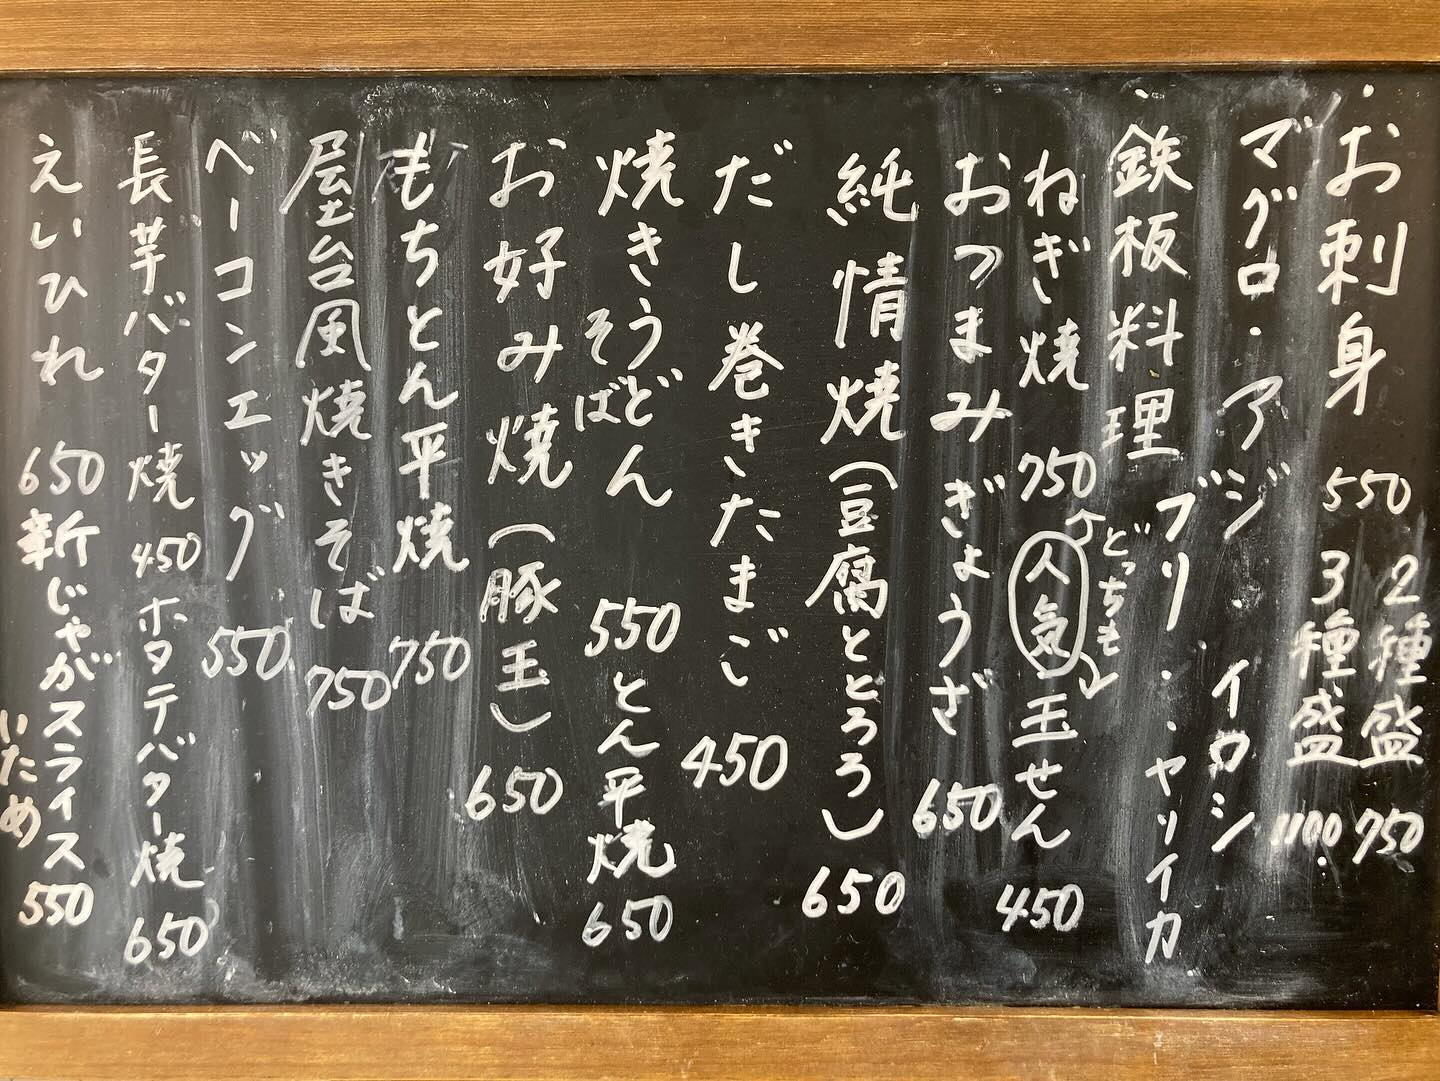 お刺身 550 2種盛 750
3種盛 1100
マグロ・アジ イワシ
ブリ・ヤリイカ
鉄板料理
どっちも
ねぎ焼 750 人気 玉せん 450
おつまみぎょうざ 650
純情焼(豆腐ととろろ) 650
だし巻きたまご 450
焼きうどん 550 とん平焼 650
そば
お好み焼(豚玉) 650
もちとん平焼 750
屋台風焼きそば 750
ベーコンエッグ 550
長芋バター焼 450 ホタテバター焼 650
えいひれ 650 新じゃがスライス 550
いため